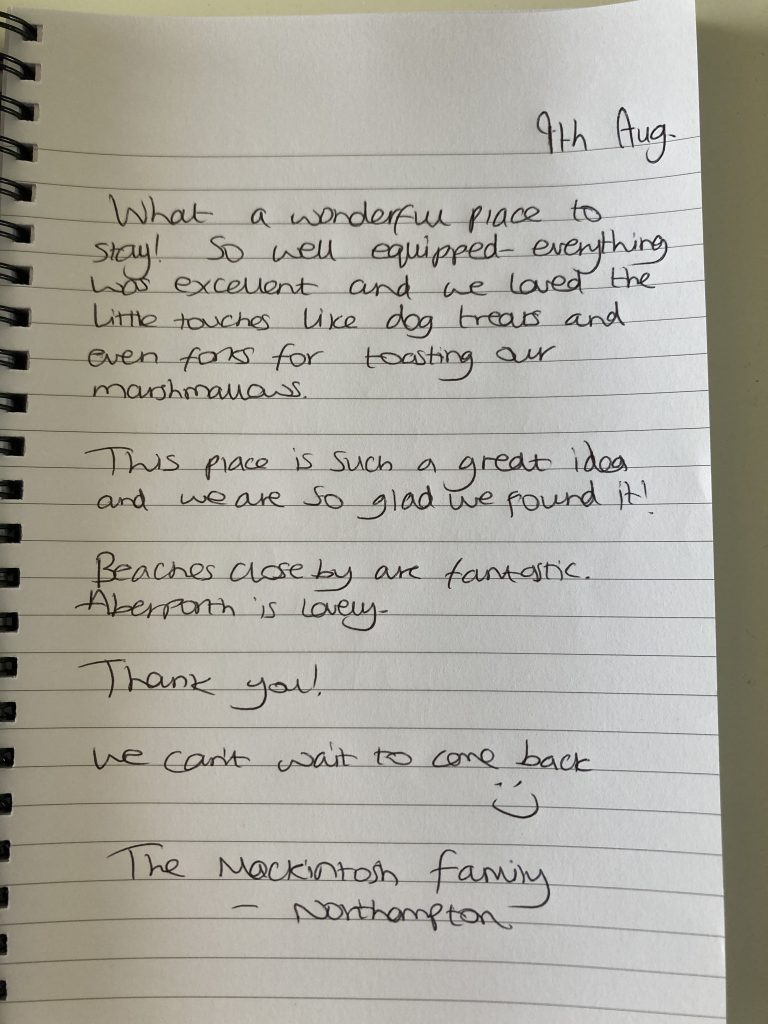 9th Aug.
What a wonderful place to
stay! So well equipped - everything
was excellent and we loved the
little touches like dog treats and
even forks for toasting our
marshmallows.
This place is such a great idea
and we are so glad we found it!
Beaches close by are fantastic.
Aberporth is lovely.
Thank you!
We can't wait to come back
:)
The Mackintosh family
- Northampton